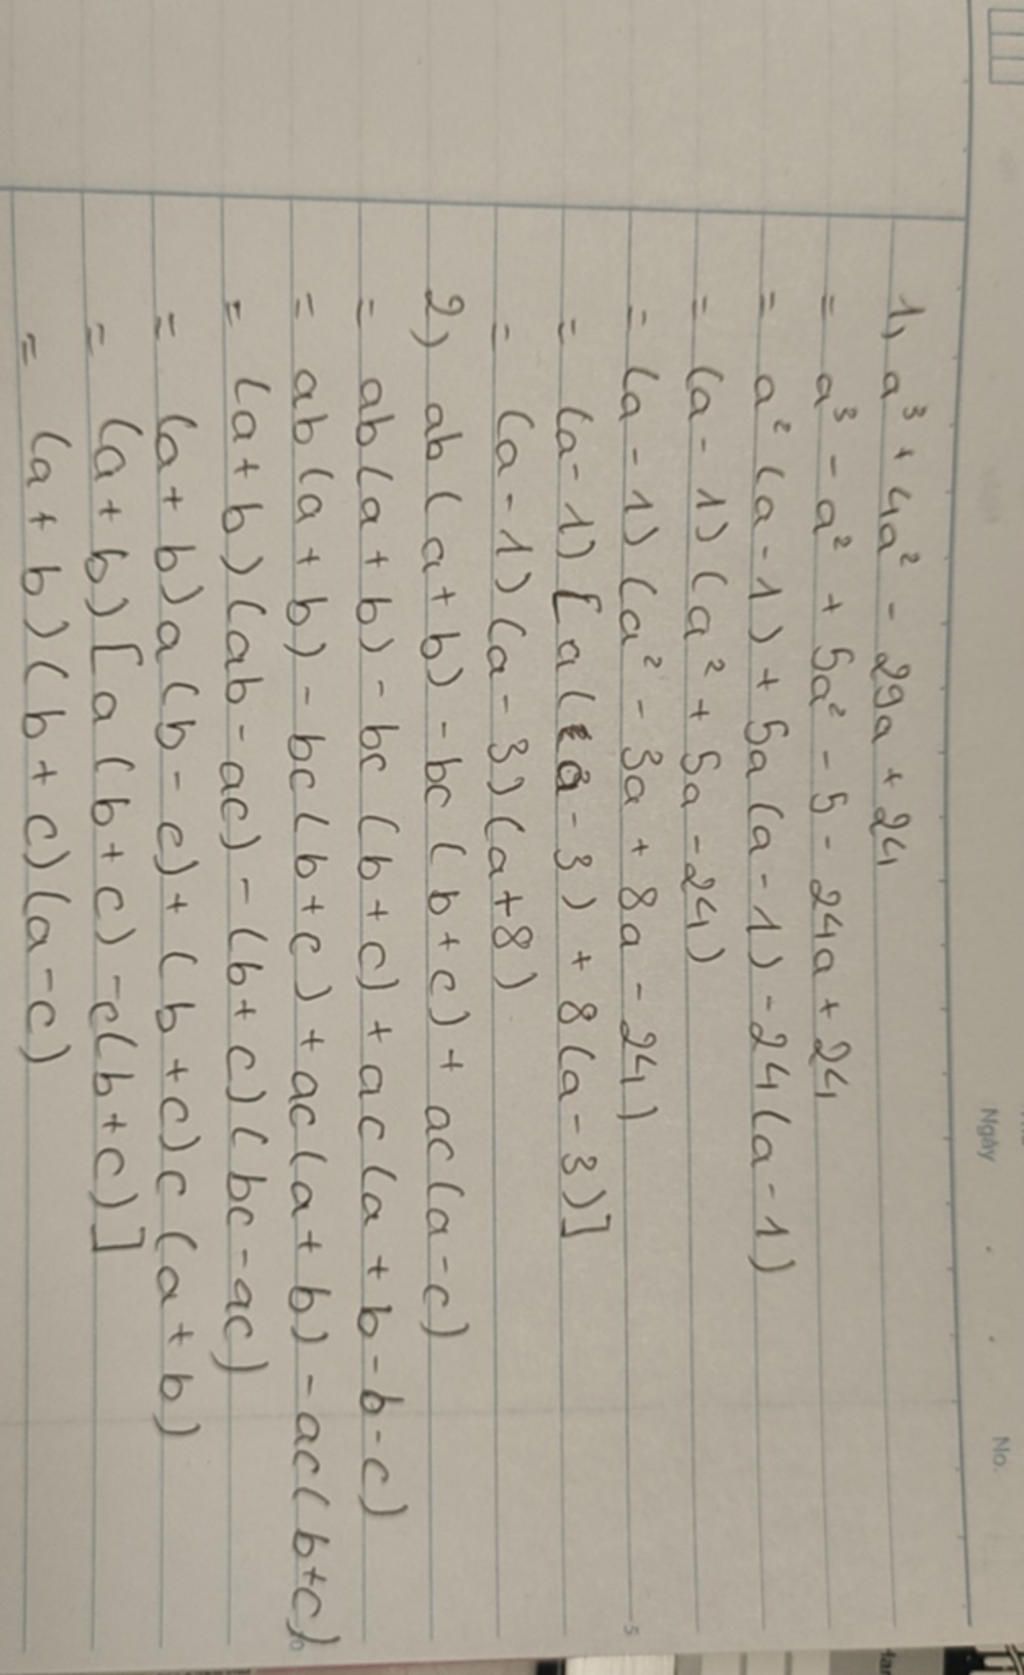 Ngày
No.
1, a³ + 4a² - 29a + 24
= a³ - a² + 5a² - 5 - 24a + 24
= a² (a - 1) + 5a (a - 1) - 24 (a - 1)
= (a - 1) (a² + 5a - 24)
= (a - 1) (a² - 3a + 8a - 24)
= (a - 1) [a(a - 3) + 8 (a - 3)]
= (a - 1) (a - 3) (a + 8)
2) ab (a + b) - bc (b + c) + ac (a - c)
= ab (a + b) - bc (b + c) + ac (a + b - b - c)
= ab (a + b) - bc (b + c) + ac (a + b) - ac (b + c)
= (a + b) (ab - ac) - (b + c) (bc - ac)
= (a + b) a (b - c) + (b + c) c (a + b)
= (a + b) [a (b + c) - c (b + c)]
= (a + b) (b + c) (a - c)
5
10